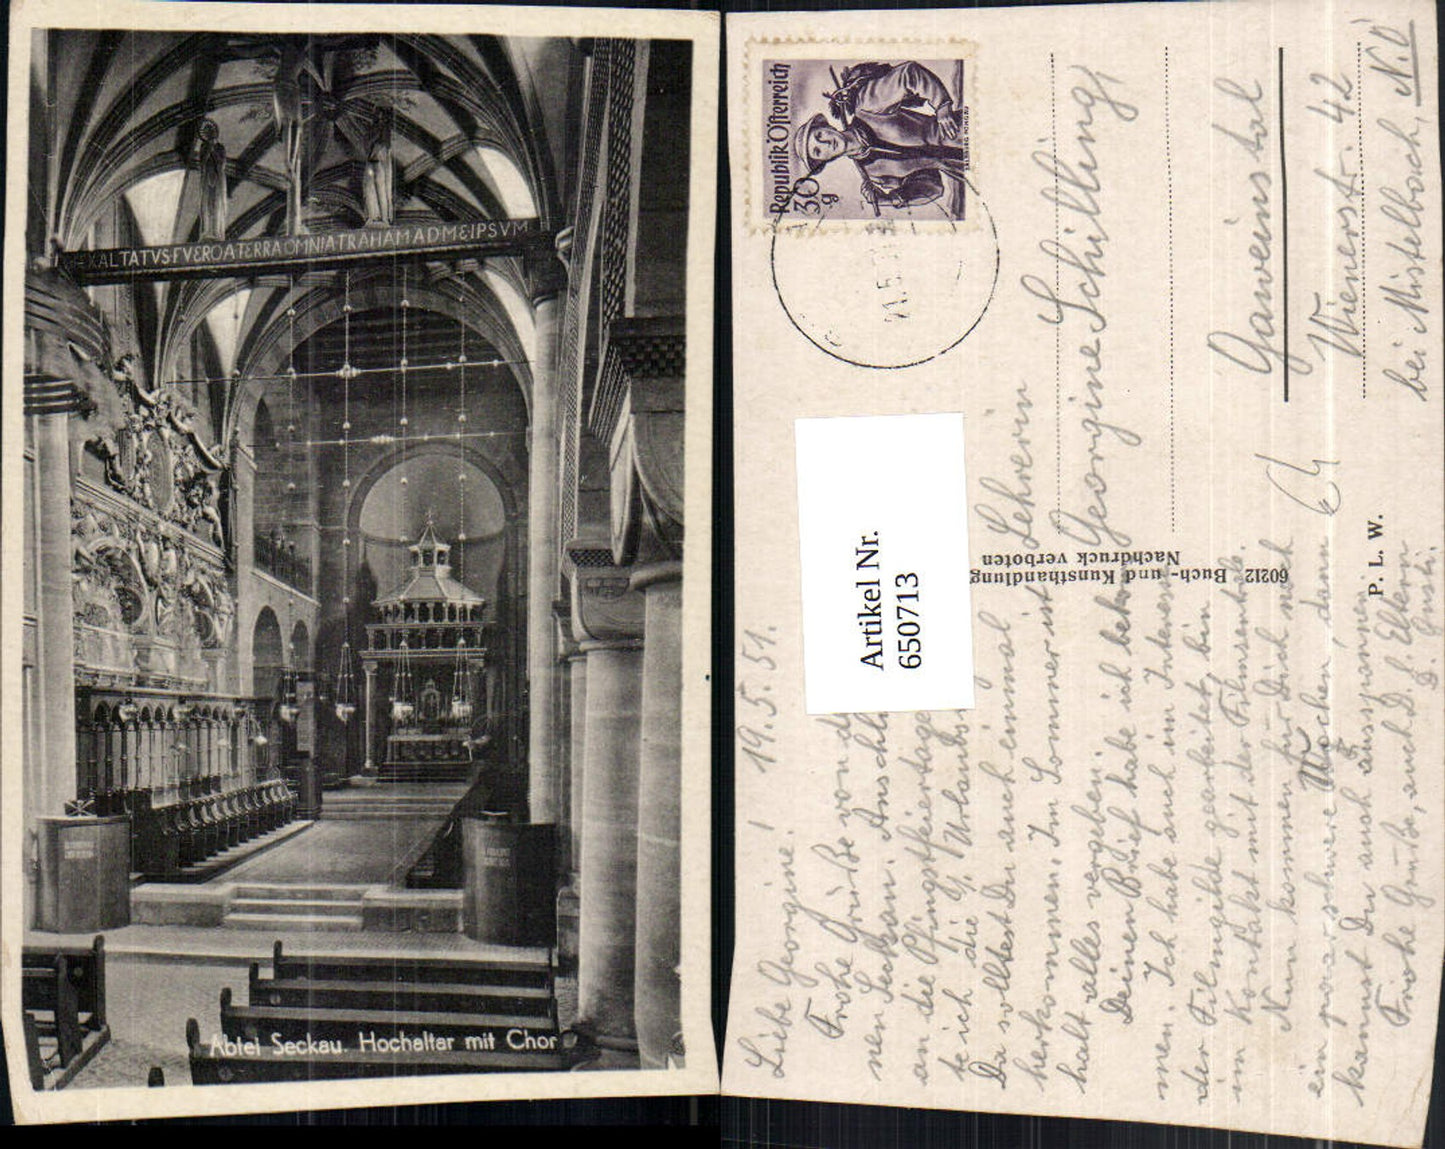 EXALTATVS FVERO A TERRA OMNIA TRAHAM AD ME IPSVM
Abtei Seckau. Hochaltar mit Chor
Republik Österreich
30
g
SALZBURG PONGAU
21.5.5
Artikel Nr.
6507713
60212 Buch- und Kunsthandlung
Nachdruck verboten
P. L. W.
19.5.51.
Liebe Georgine!
Frohe Grüße von
nen Seckau. Anschl
an die Pfingstfeiertage
te ich die Urlaubs
Da solltest Du auch einmal
herkommen. Im Sommer ist
halt alles vergeben.
Deinen Brief habe ich bekom
men. Ich habe auch im Interesse
der Filmgilde gearbeitet, bin
im Kontakt mit der Filmsentrale.
Nun kommen für Dich noch
ein paar schwere Wochen, dann
kannst Du auch ausspannen.
Frohe Grüße, auch D. l. Eltern
D. Gusti.
Lehrerin
Georgine Schilling
Gaweinstal
Wienerstr. 42
bei Mistelbach, N.Ö